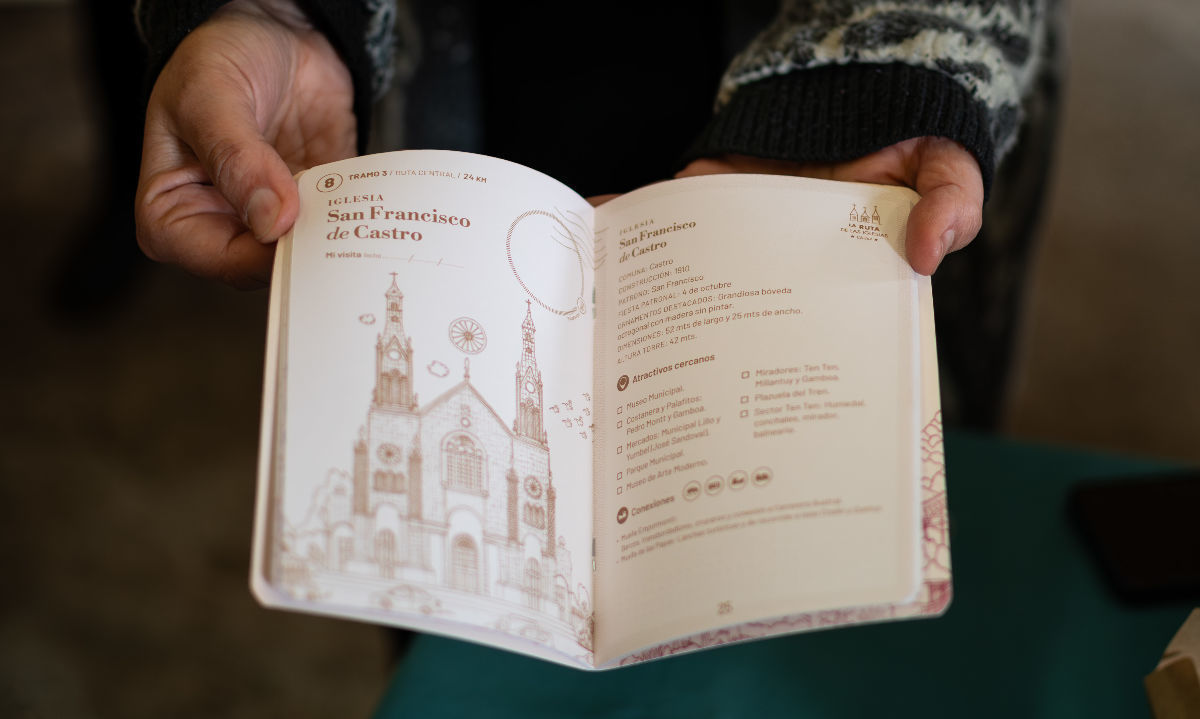 8 TRAMO 3 / RUTA CENTRAL / 24 KM
IGLESIA
San Francisco
de Castro
Mi visita fecha / /
IGLESIA
San Francisco
de Castro
LA RUTA
DE LAS IGLESIAS
COMUNA: Castro
CONSTRUCCIÓN: 1910
PATRONO: San Francisco
FIESTA PATRONAL: 4 de octubre
ORNAMENTOS DESTACADOS: Grandiosa bóveda
octogonal con madera sin pintar.
DIMENSIONES: 52 mts de largo y 25 mts de ancho.
ALTURA TORRE: 42 mts.
Atractivos cercanos
Museo Municipal.
Costanera y Palafitos:
Pedro Montt y Gamboa.
Mercados: Municipal Lillo y
Yumbel (José Sandoval).
Parque Municipal.
Museo de Arte Moderno.
Miradores: Ten Ten,
Millantuy y Gamboa.
Plazuela del Tren.
Sector Ten Ten: Humedal,
conchales, mirador,
balneario.
Conexiones